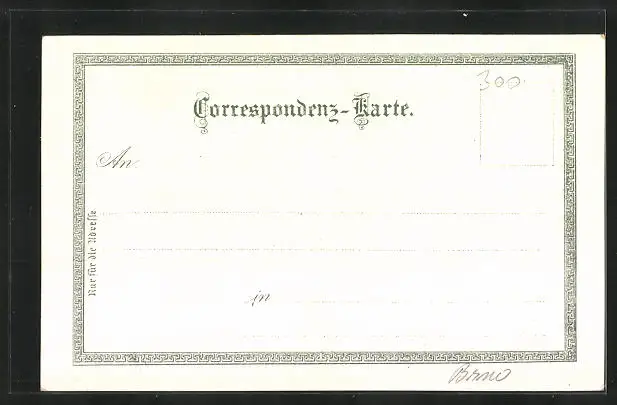 300.
Correspondenz-Karte.
An
Nur für die Adresse
in
Brno